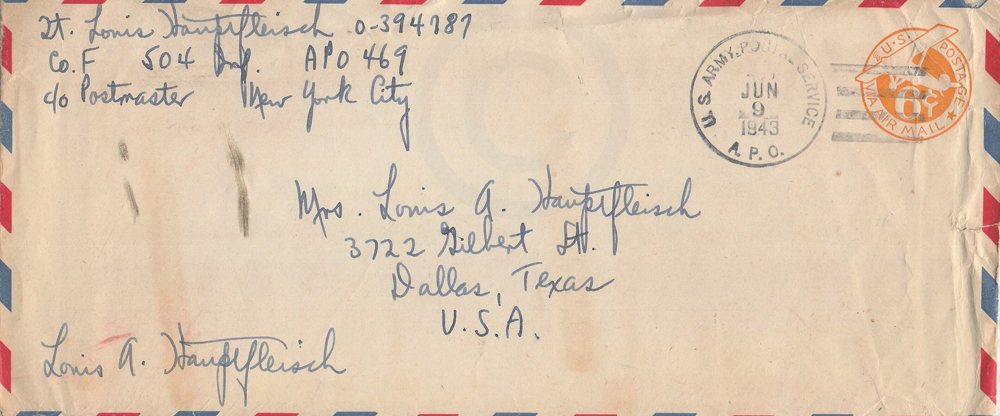 Lt. Louis Hauptfleisch O-394787
Co. F 504 Inf. APO 469
c/o Postmaster New York City
U.S. ARMY, POSTAL SERVICE
JUN
9
1943
A. P. O.
U.S. POSTAGE
6¢
VIA AIR MAIL
Mrs. Louis A. Hauptfleisch
3722 Gilbert St.
Dallas, Texas
U.S.A.
Louis A. Hauptfleisch